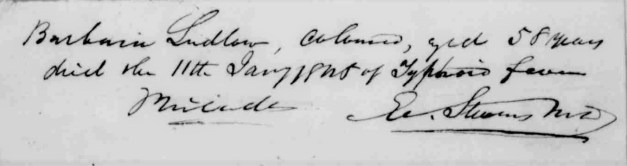 Barbara Ludlow, colored, aged 58 years
died the 11th Jany 1848 of Typhoid fever
E. Stevens MD